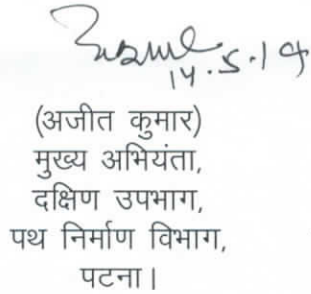 14.5.19
(अजीत कुमार)
मुख्य अभियंता,
दक्षिण उपभाग,
पथ निर्माण विभाग,
पटना।